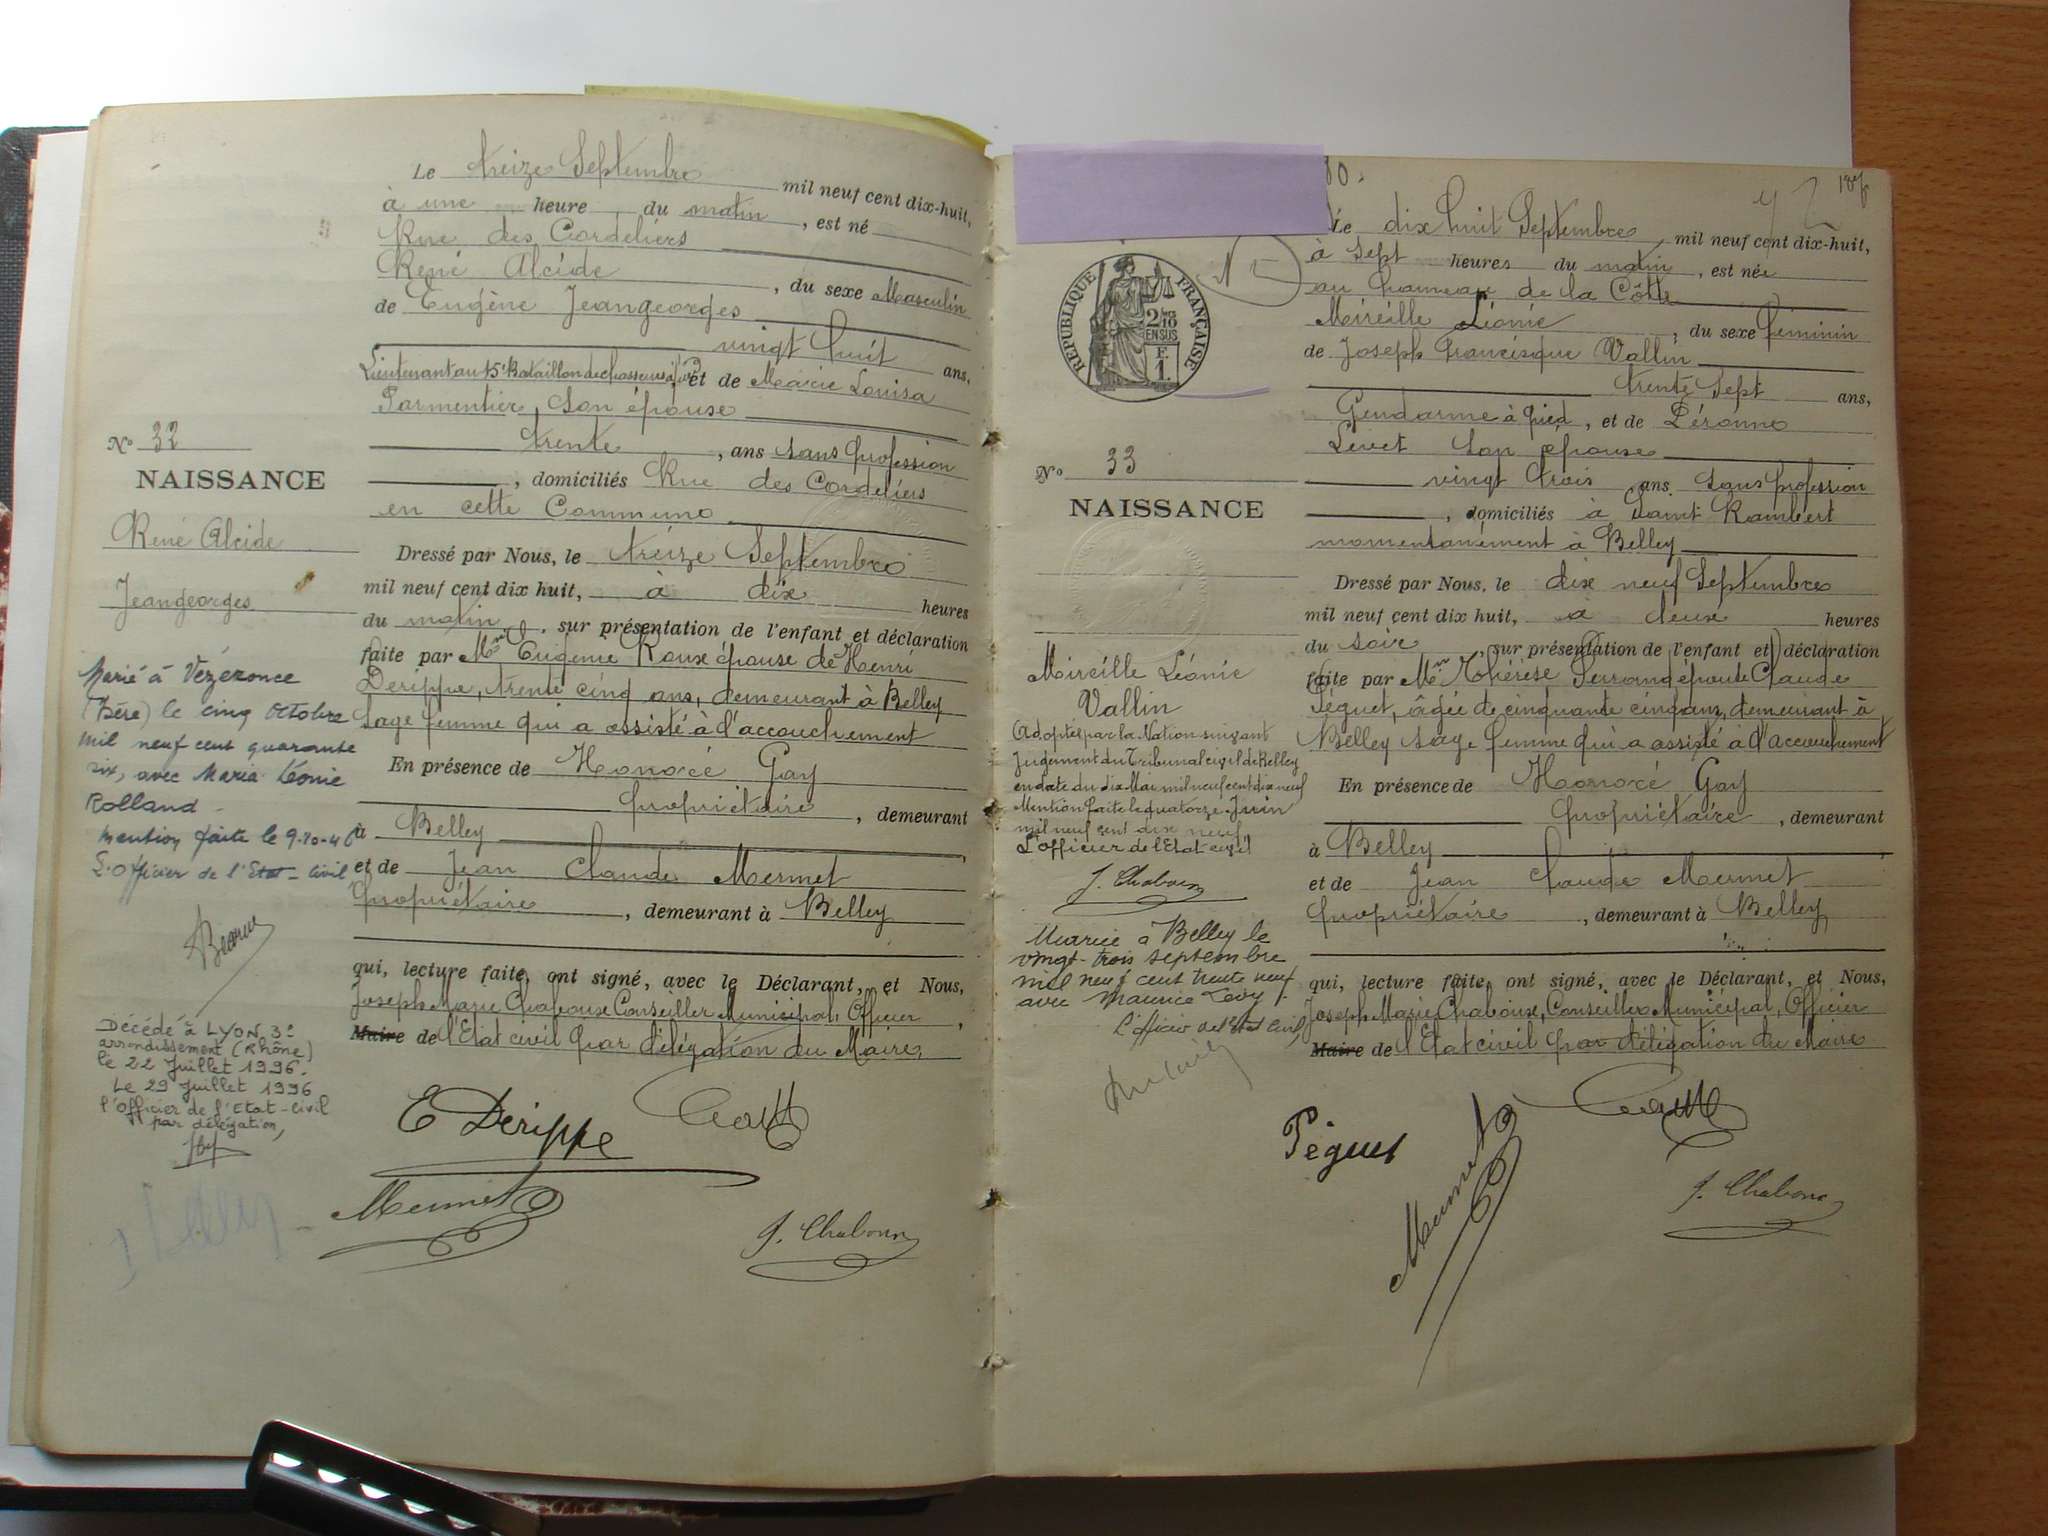 Le treize Septembre mil neuf cent dix-huit,
à une heure du matin, est né
Rue des Cordeliers
René Alcide, du sexe Masculin
de Eugène Jeangeorges
vingt huit ans,
Lieutenant au 15e Bataillon de chasseurs à pied et de Marie Louisa
Parmentier, son épouse
trente, ans sans profession
, domiciliés Rue des Cordeliers
en cette Commune
Dressé par Nous, le treize Septembre
mil neuf cent dix huit, à dix heures
du matin, sur présentation de l'enfant et déclaration
faite par Mme Eugénie Roux épouse de Henri
Derippe, trente cinq ans, demeurant à Belley
Sage femme qui a assisté à l'accouchement
En présence de Honoré Gay
propriétaire, demeurant
à Belley
et de Jean Claude Mermet
propriétaire, demeurant à Belley
qui, lecture faite, ont signé, avec le Déclarant, et Nous,
Joseph Marie Chaboux Conseiller Municipal, Officier,
Maire de l'Etat civil par délégation du Maire,
E Derippe
Gay
Mermet
J. Chaboux
No 32
NAISSANCE
René Alcide
Jeangeorges
Marié à Vézeronce
(Isère) le cinq Octobre
mil neuf cent quarante
six, avec Maria Léonie
Rolland -
mention faite le 9-10-46
L'Officier de l'Etat-Civil
Décédé à LYON 3e
arrondissement (Rhône)
le 22 Juillet 1996.
Le 29 Juillet 1996
l'Officier de l'Etat-Civil
par délégation,
30.
187
RÉPUBLIQUE FRANÇAISE
2/10
EN SUS
F.
1.
Le dix huit Septembre mil neuf cent dix-huit,
à Sept heures du matin, est née
au hameau de la Côte
Mireille Léonie, du sexe féminin
de Joseph Francisque Vallin
trente Sept ans,
Gendarme à pied, et de Péronne
Levet son épouse
vingt trois, ans. Sans profession
, domiciliés à Saint Rambert
momentanément à Belley
Dressé par Nous, le dix neuf Septembre
mil neuf cent dix huit, à deux heures
du soir, sur présentation de l'enfant et déclaration
faite par Mme Thérèse Ferrand épouse Claude
Péguet, âgée de cinquante cinq ans, demeurant à
Belley Sage femme qui a assisté à l'accouchement
En présence de Honoré Gay
propriétaire, demeurant
à Belley
et de Jean Claude Mermet
propriétaire, demeurant à Belley
qui, lecture faite, ont signé, avec le Déclarant, et Nous,
Joseph Marie Chaboux, Conseiller Municipal, Officier
Maire de l'Etat civil par délégation du Maire
Péguet
Mermet
Gay
J. Chaboux
No 33
NAISSANCE
Mireille Léonie
Vallin
Adoptée par la Nation suivant
Jugement du Tribunal civil de Belley
en date du dix Mai mil neuf cent dix neuf
Mention faite le quatorze Juin
mil neuf cent dix neuf,
L'officier de l'Etat civil
J. Chaboux
Mariée à Belley le
vingt-trois septembre
mil neuf cent trente neuf
avec Maurice Levy.
L'Officier de l'Etat Civil,